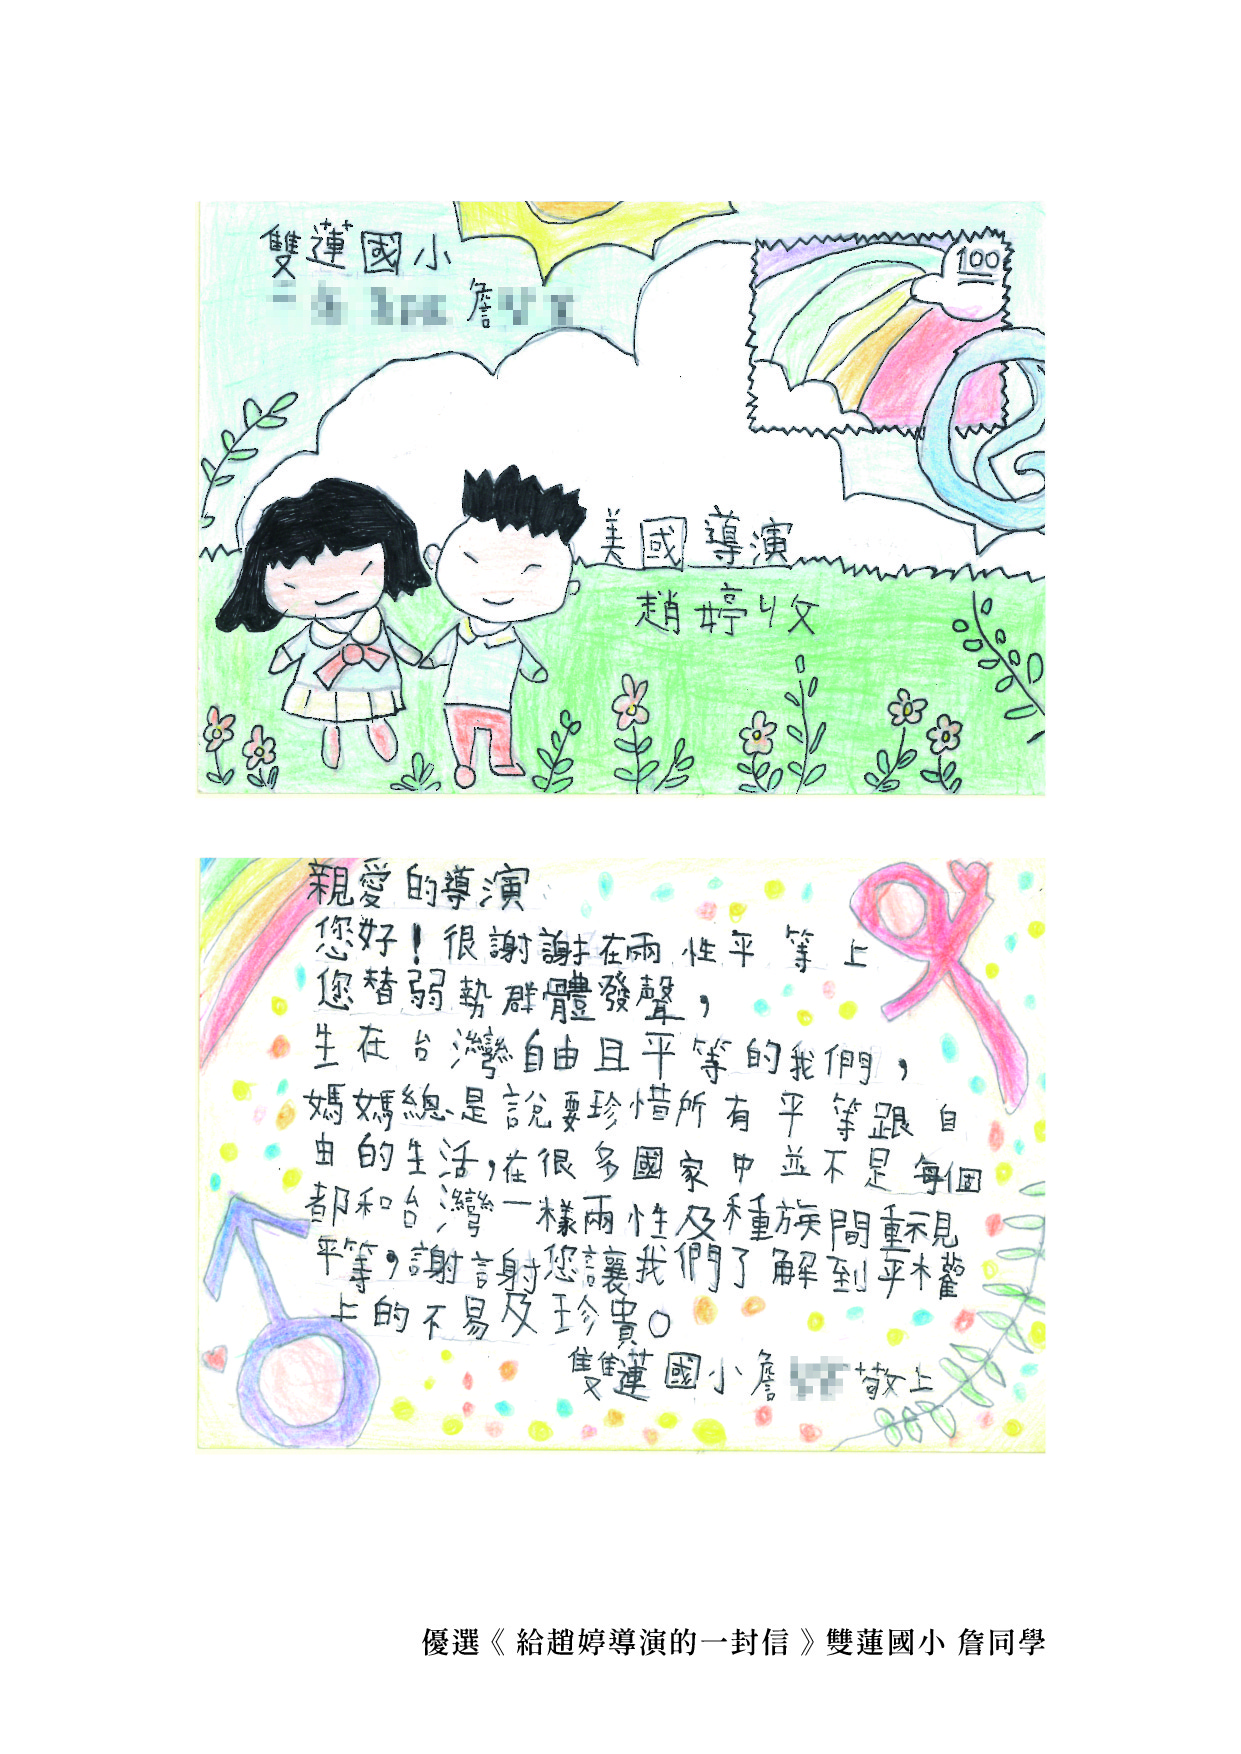 雙蓮國小
詹
100
美國導演
趙婷收
親愛的導演
您好！很謝謝在兩性平等上
您替弱勢群體發聲，
生在台灣自由且平等的我們，
媽媽總是說要珍惜所有平等跟自
由的生活，在很多國家中並不是每個
都和台灣一樣兩性及種族間重視
平等，謝謝您讓我們了解到平權
上的不易及珍貴。
雙蓮國小詹 敬上
優選《 給趙婷導演的一封信 》雙蓮國小 詹同學